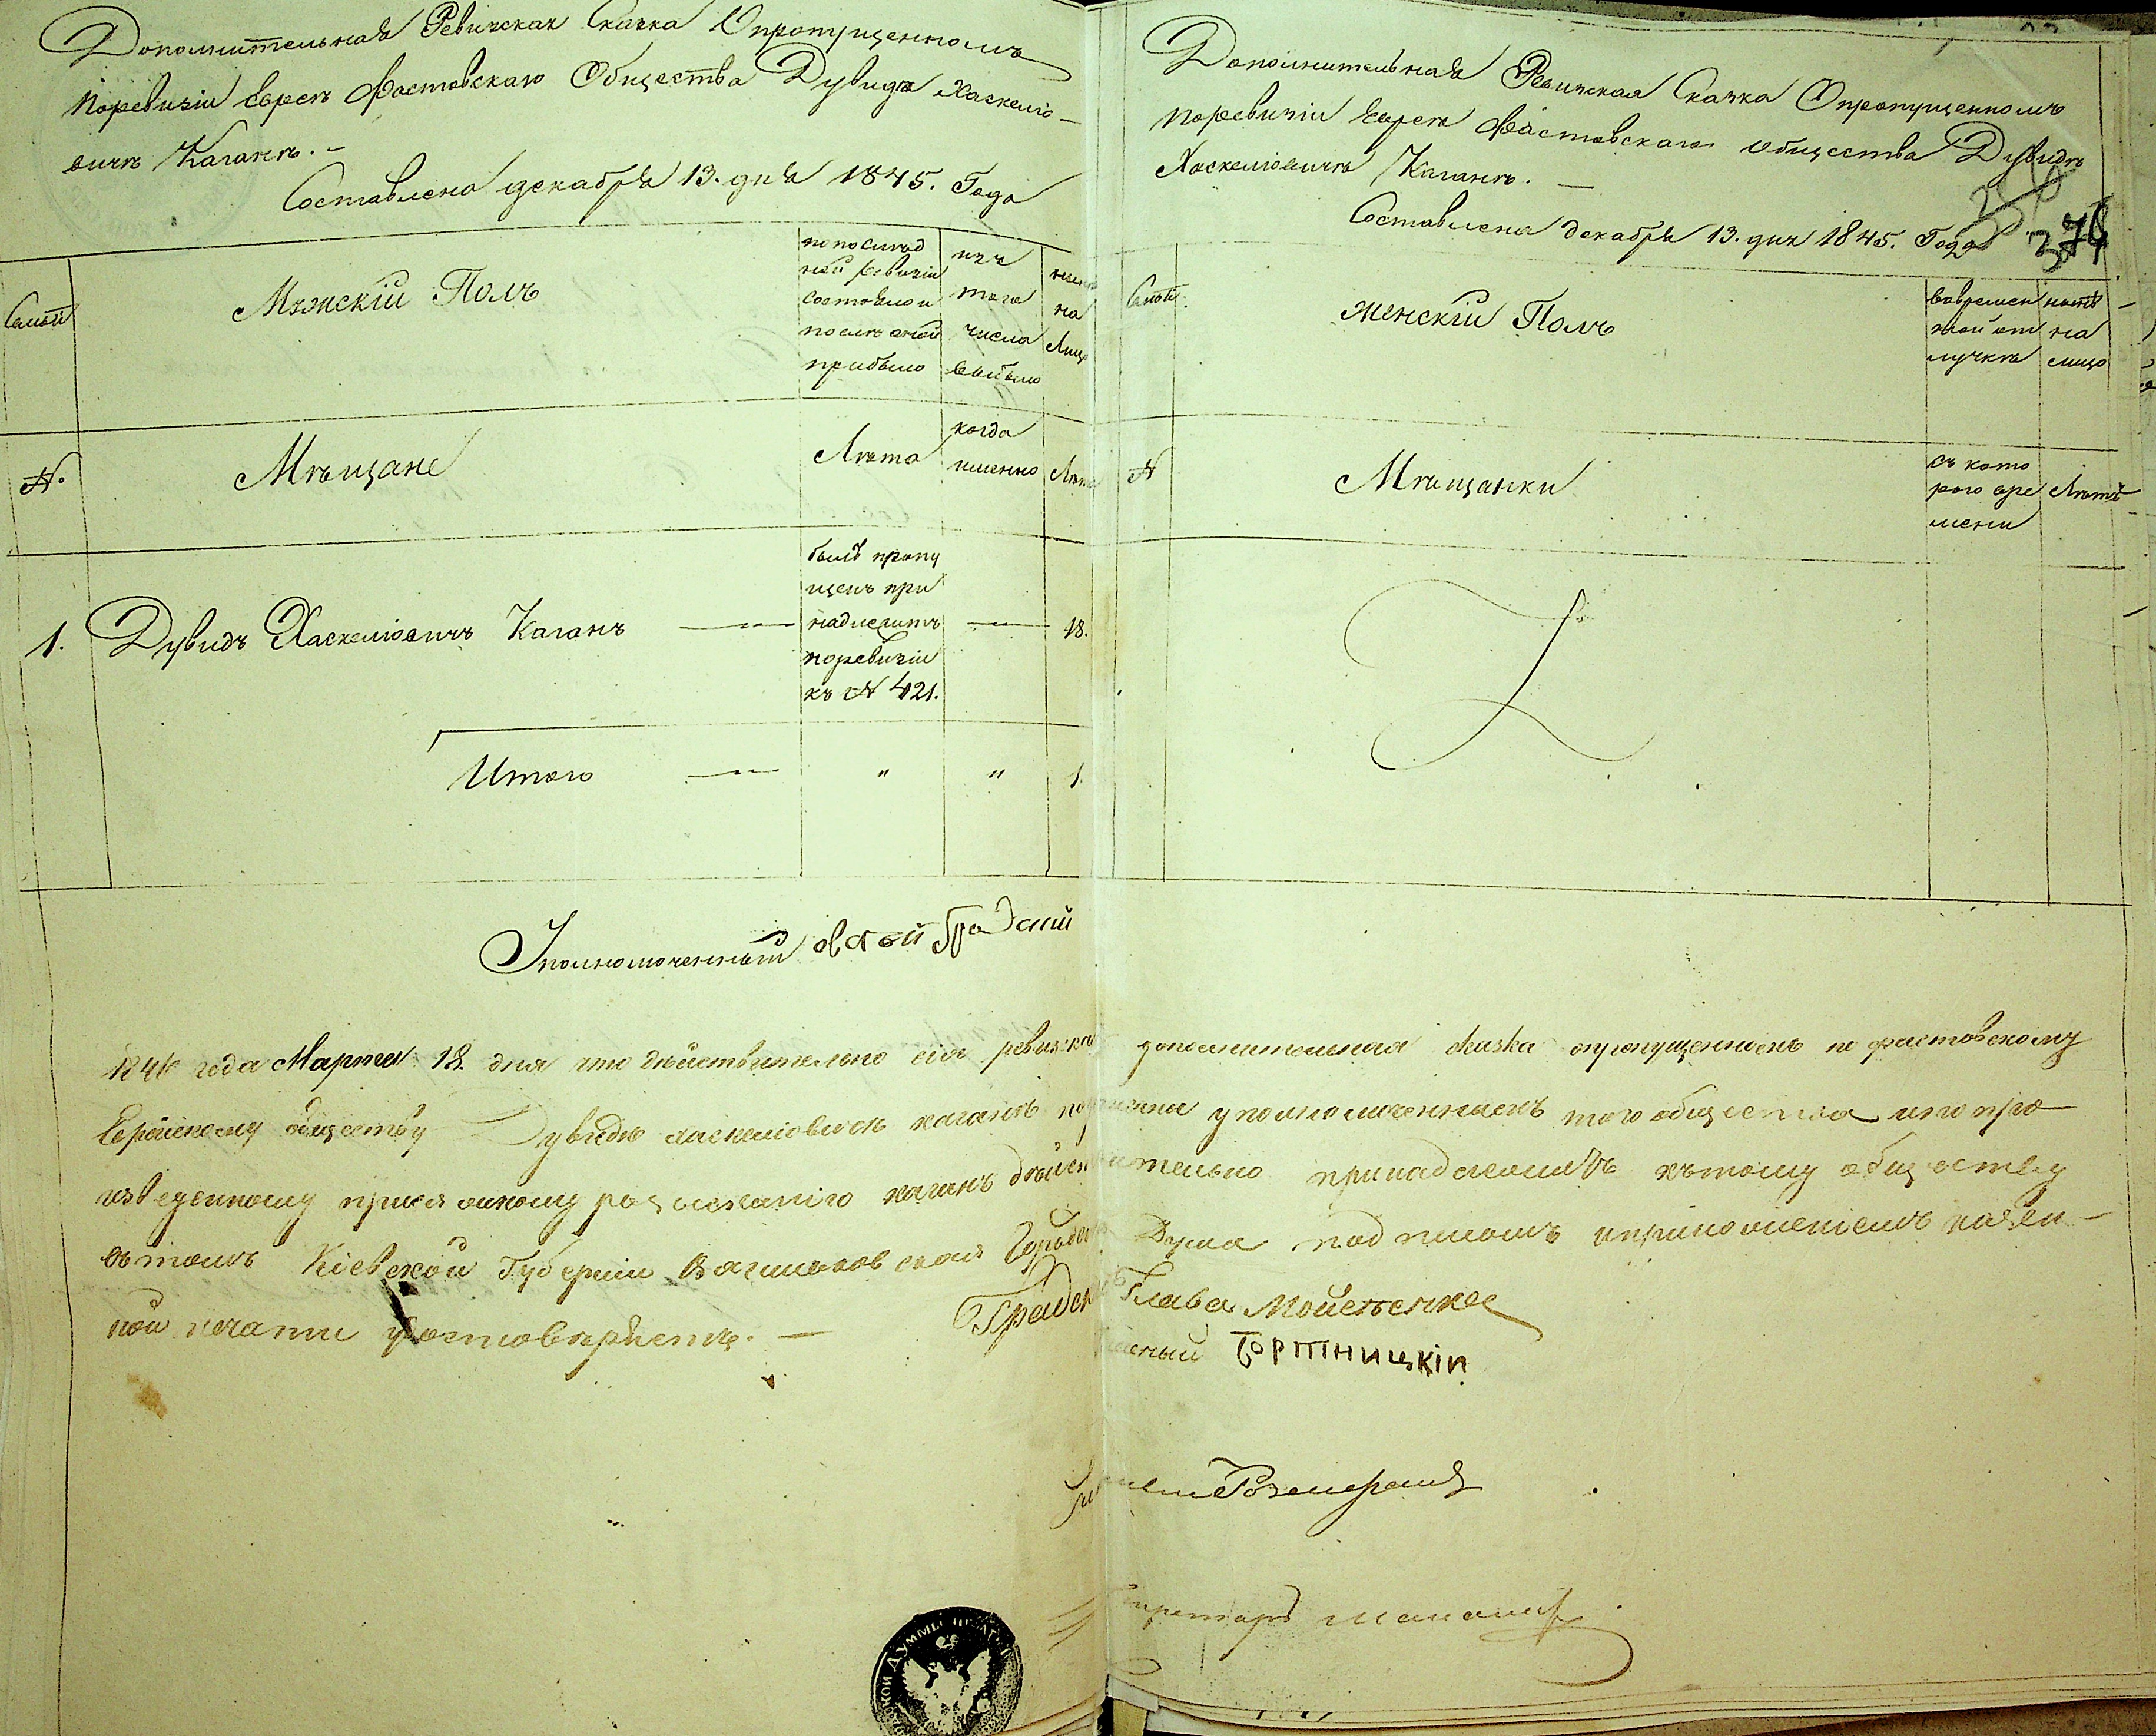 Дополнительная Ревизская Сказка Опропущенномъ
поревизіи Евреѣ Фастовскаго Общества Дувидѣ Хаскеліо-
вичѣ Каганѣ. –
Составлена декабря 13. дня 1845. Года
Семьи
Мужскій Полъ
попослѣд
ней ревизіи
состояло и
послѣ оной
прибыло
изъ
того
числа
выбыло
на
Лицо
№.
Мѣщане
Лѣта
когда
именно
Лѣта
1.
Дувидъ Хаскеліовичъ Каганъ
былъ пропу
щенъ при
надлежитъ
поревизіи
къ № 421.
18.
Итого
"
"
1.
Уполномоченный
Дополнительная Ревизская Сказка Опропущенномъ
поревизіи Евреѣ Фастовскаго Общества Дувидѣ
Хаскеліовичѣ Каганѣ. –
Составлена декабря 13. дня 1845. Года
374
Семьи
женскій Полъ
вовремен
ной от
лучкѣ
нынѣ
на
лицо
№
Мѣщанки
съ кото
рого вре
мени
Лѣта
1846 года Марта 18. дня что дѣйствительно сія ревизская дополнительная сказка опропущенномъ по фастовскому
Еврейскому обществу Дувидѣ хаскеліовичѣ каганѣ подписана уполномоченнымъ того общества ипо про–
изведенному присяжному разысканію каганъ дѣйствительно принадлежитъ кътому обществу
вътомъ Кіевской Губерніи Васильковская Городская Дума подписомъ иприложеніемъ казен–
ной печати удостовѣряетъ. –
Градскій Глава Мойсеенко
Гласный Бортницкій
Секретарь